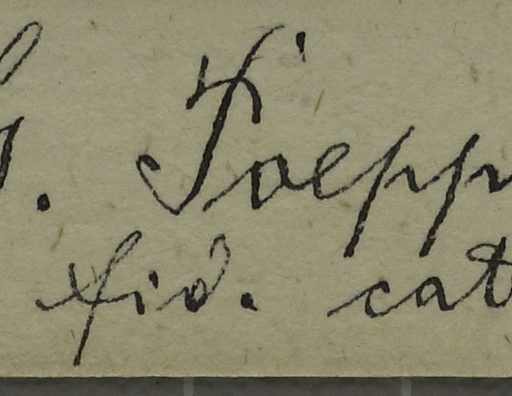 G. Toepp
fid. cat